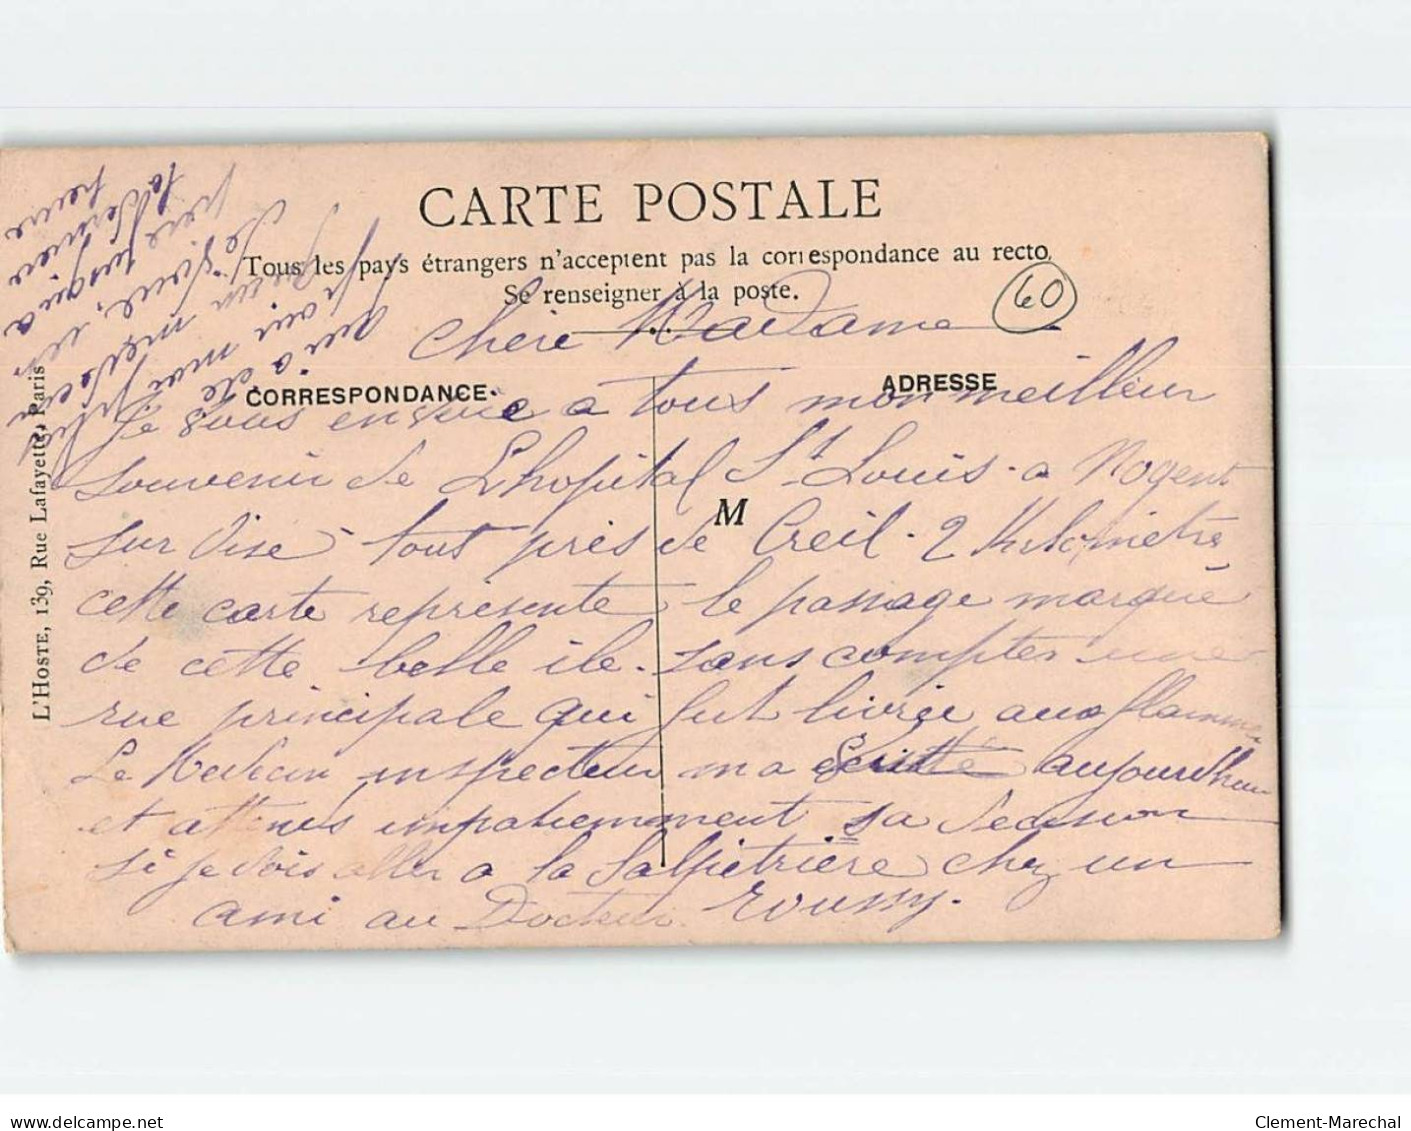 CARTE POSTALE
Tous les pays étrangers n'acceptent pas la correspondance au recto
Se renseigner à la poste.
60
Chère Madame
CORRESPONDANCE.
ADRESSE
Je vous envoie a tous mon meilleur
souvenir de Lhopital St Louis. a Nogent
M
sur Oise tout près de Creil. 2 Kilomètres
cette carte represente le passage marqué
de cette belle ile. sans compter une
rue principale qui fut livrée aux flammes
Le Medecin inspecteur ma aujourdhui
et attends impatiemment sa decision
si je dois aller a la Salpêtrière chez un
ami au Docteur Roussy.
L'HOSTE, 139, Rue Lafayette, Paris
qui a été
pour moi
père jusqu'a
Clement-Marechal
www.delcampe.net